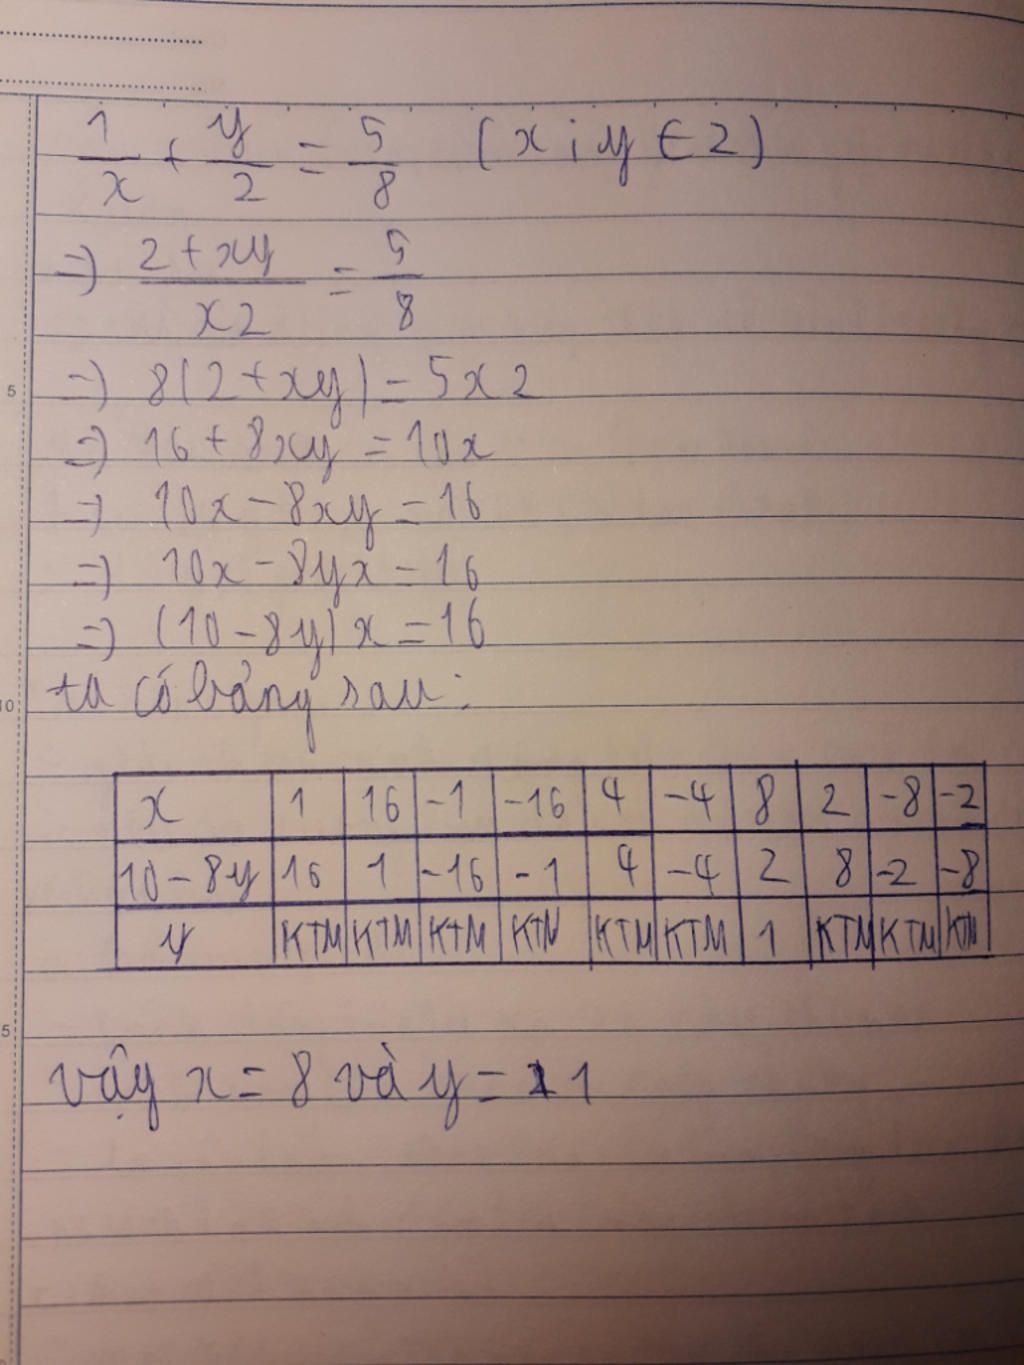 1/x + y/2 = 5/8 (x; y ∈ Z)
=> 2+xy/x2 = 5/8
=> 8(2+xy) = 5x2
=> 16 + 8xy = 10x
=> 10x - 8xy = 16
=> 10x - 8yx = 16
=> (10 - 8y)x = 16
ta có bảng sau:
x 1 16 -1 -16 4 -4 8 2 -8 -2
10-8y 16 1 -16 -1 4 -4 2 8 -2 -8
y KTM KTM KTM KTM KTM KTM 1 KTM KTM KTM
vậy x = 8 và y = 1
5
10
5